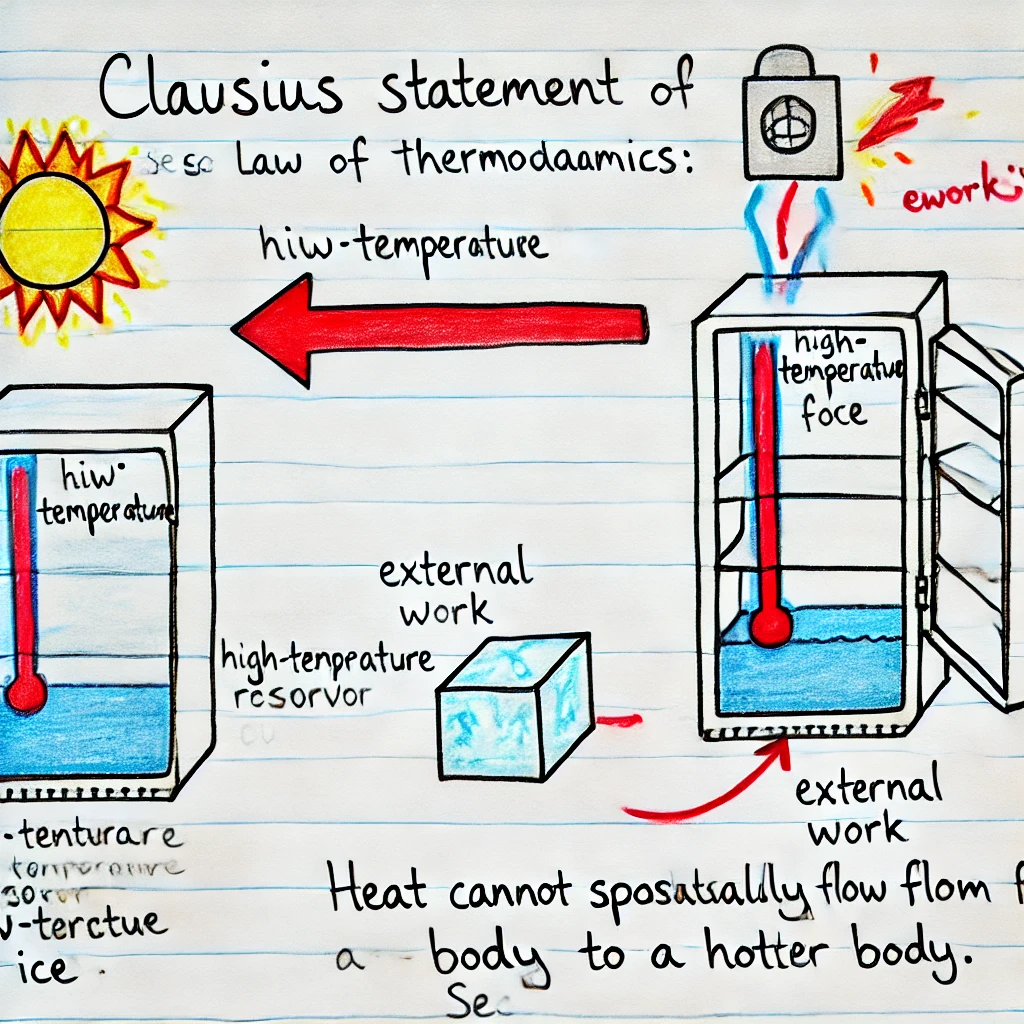 Clausius statement of
Law of thermodaamics:
ework
hiw-temperature
high-
temperatue
foce
hiw
temperature
external
work
high-tenpeature
resorvor
external
work
-tenturare
-terctue
ice.
Heat cannot flow flom
a body to a hotter body.
Sec